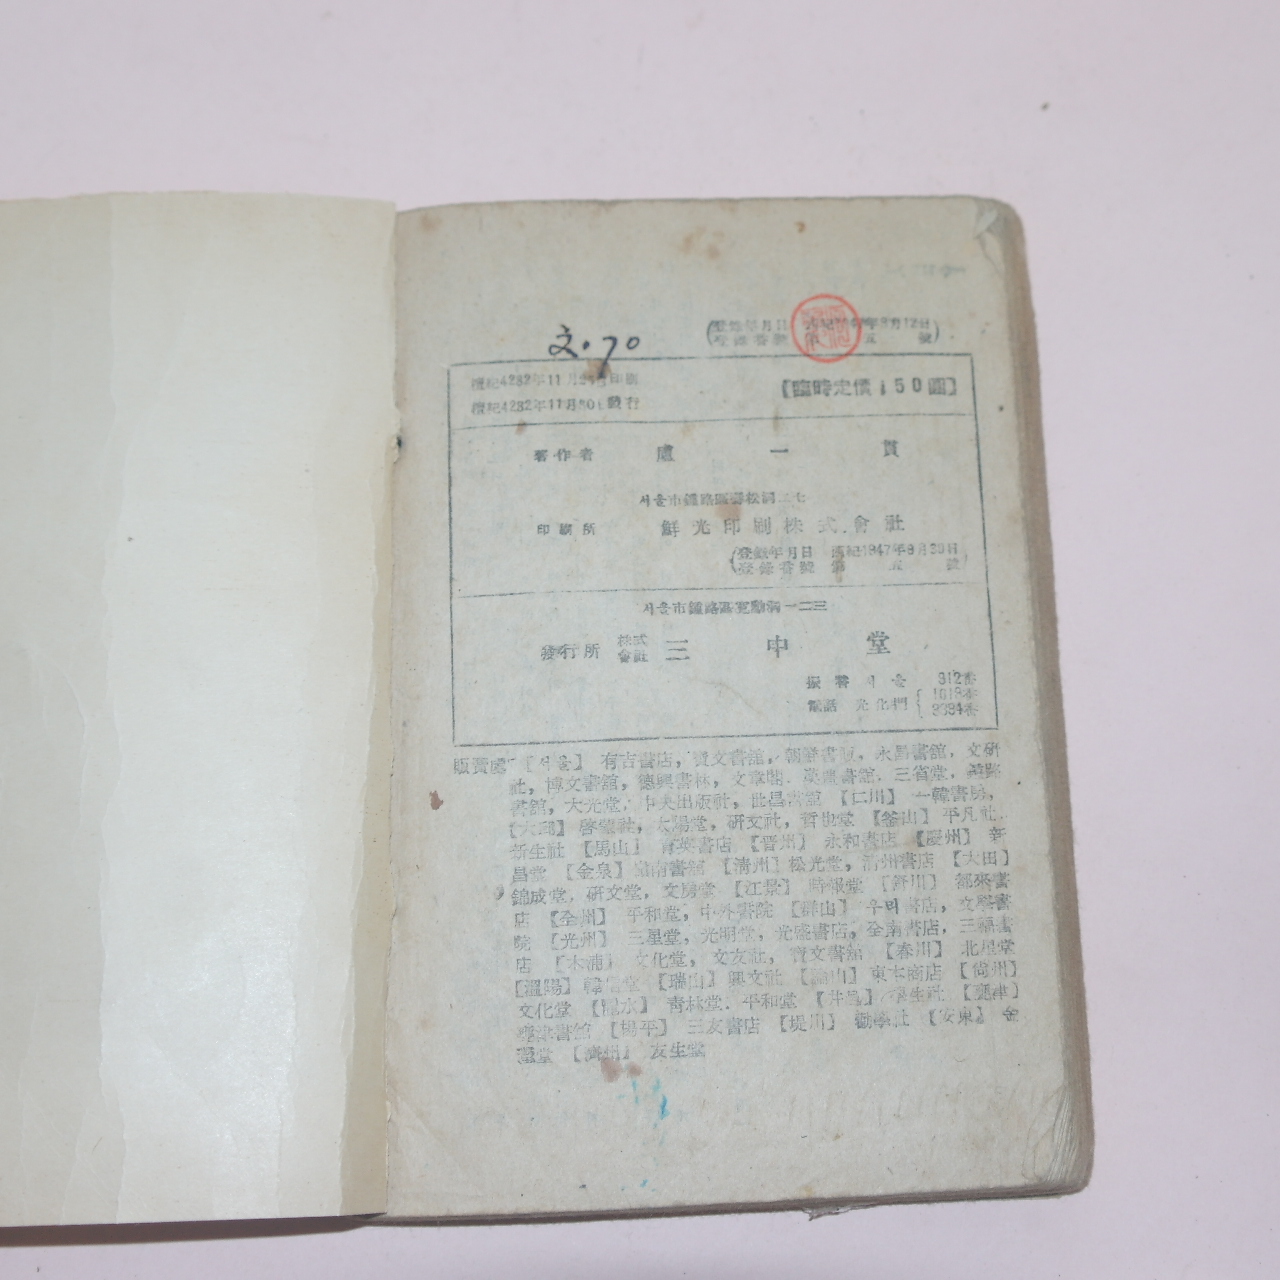 文.70
登錄年月日 西紀1947年8月12日
登錄番號 第 五 號
檀紀4282年11月 印刷
檀紀4282年11月30日發行
【臨時定價150圓】
著作者 盧一貫
서울市鍾路區壽松洞二七
印刷所 鮮光印刷株式會社
登錄年月日 西紀1947年9月23日
登錄番號 第 五 號
서울市鍾路區寬勳洞一二三
發行所 株式會社 三中堂
振替서울 312番
電話 光化門
販賣處 【서울】 有吉書店, 寶文書館, 朝鮮書 , 永昌書館, 文研
社, 博文書館, 德興書林, 文章閣, 書館, 三省堂,
書館, 大光堂, 中央出版社, 世昌書館 【仁川】 一韓書房,
【大邱】 啓蒙社, 太陽堂, 研文社, 哲也堂 【釜山】 平凡社,
新生社 【馬山】 書店 【晋州】 永和書店 【慶州】 新
昌堂 【金泉】 南書館 【淸州】 松光堂, 淸州書店 【大田】
錦成堂, 研文堂, 文房堂 【江景】 時報堂 書
店 【全州】 平和堂, 中外書院 【群山】 우리書店, 文學書
院 【光州】 三星堂, 光明堂, 光盛書店, 全南書店, 三福書
店 【木浦】 文化堂, 文友社, 寶文書館 【春川】 北星堂
【溫陽】 韓 堂 【瑞山】 興文社 【論山】 東本商店 【尙州】
文化堂 【麗水】 靑林堂, 平和堂 生社
書館 【楊平】 三友書店 【堤川】 勸學社 【安東】 金
堂 【濟州】 友生堂